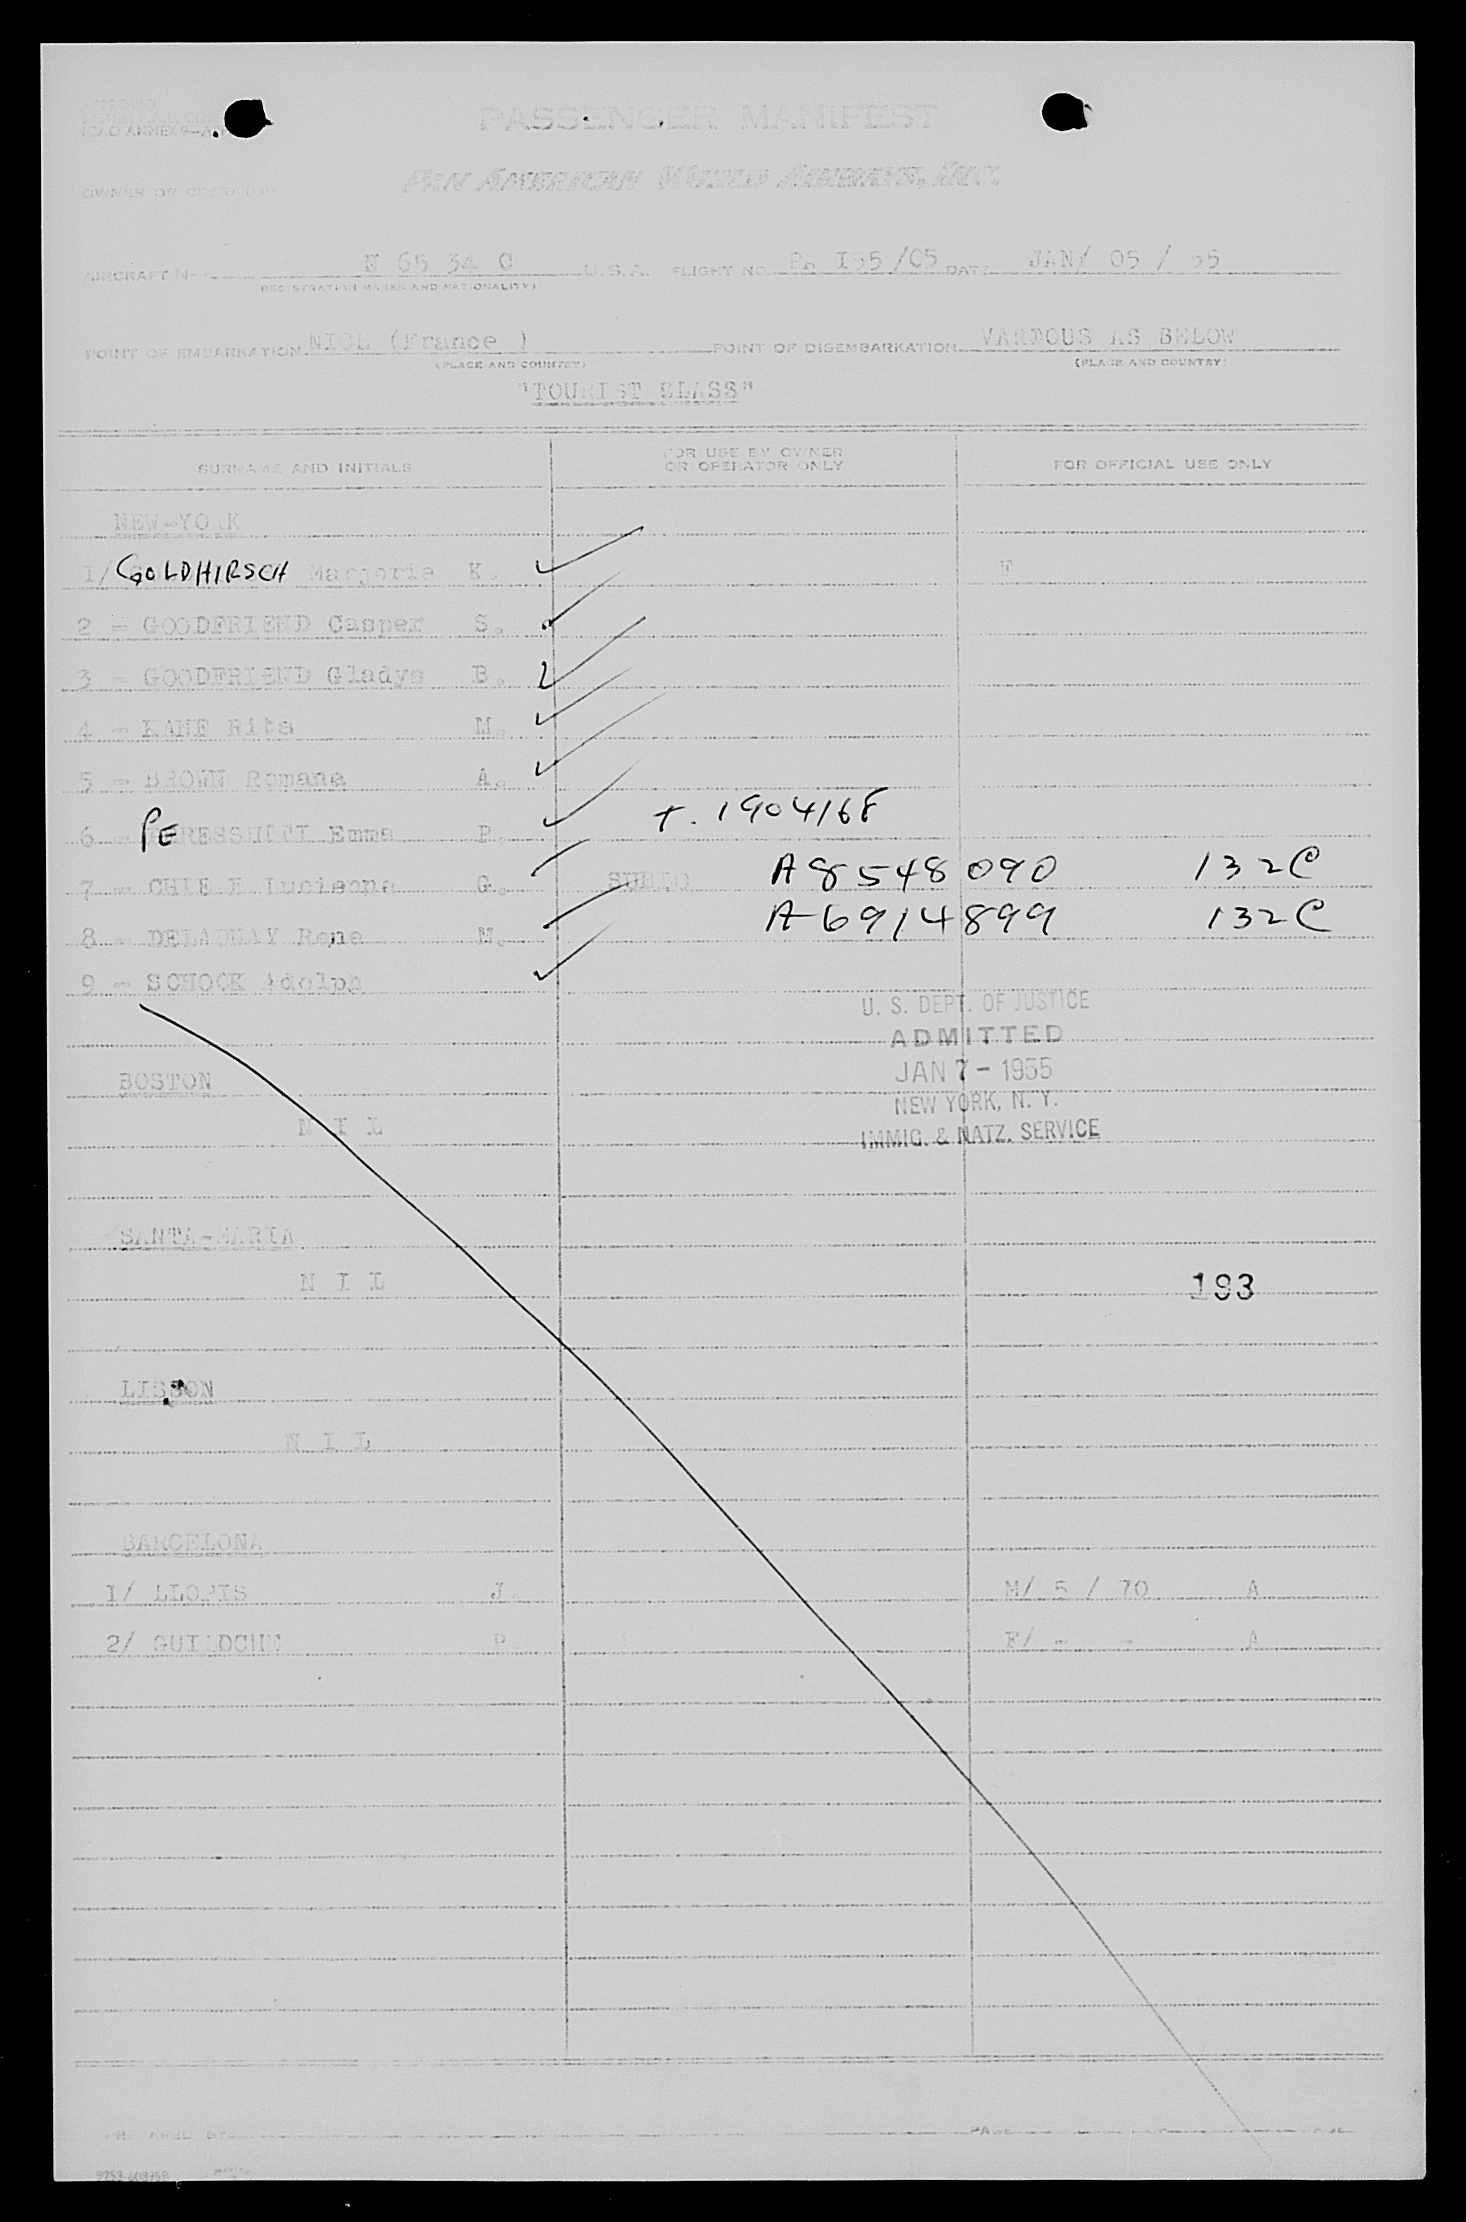 ICAO ANNEX 9—A
PASSENGER MANIFEST
OWNER OR OPERATOR
PAN AMERICAN WORLD AIRWAYS, INC.
AIRCRAFT N 65 34 C U.S.A. FLIGHT NO. PA 155/05 DATE JAN/ 05 / 55
(REGISTRATION MARKS AND NATIONALITY)
POINT OF EMBARKATION NICE (France ) POINT OF DISEMBARKATION VARIOUS AS BELOW
(PLACE AND COUNTRY) (PLACE AND COUNTRY)
"TOURIST CLASS"
SURNAME AND INITIALS FOR USE BY OWNER OR OPERATOR ONLY FOR OFFICIAL USE ONLY
NEW-YORK
1/ GOLDHIRSCH Marjorie K. F
2 - GOODFRIEND Casper S.
3 - GOODFRIEND Gladys B.
4 - KANE Rita M.
5 - BROWN Romana A.
6 - PE Emma P. T. 190416F
7 - G. A8548090 132C
8 - DELAUNAY Rene M. A6914899 132C
9 - SCHOCK Adolph
U. S. DEPT. OF JUSTICE
ADMITTED
JAN 7 - 1955
NEW YORK, N. Y.
IMMIG. & NATZ. SERVICE
BOSTON
N I L
SANTA-MARIA
N I L
193
LISBON
N I L
BARCELONA
1/ LLOPIS J. M/ 5 / 70 A
2/ P F/ - - A
PREPARED BY PAGE